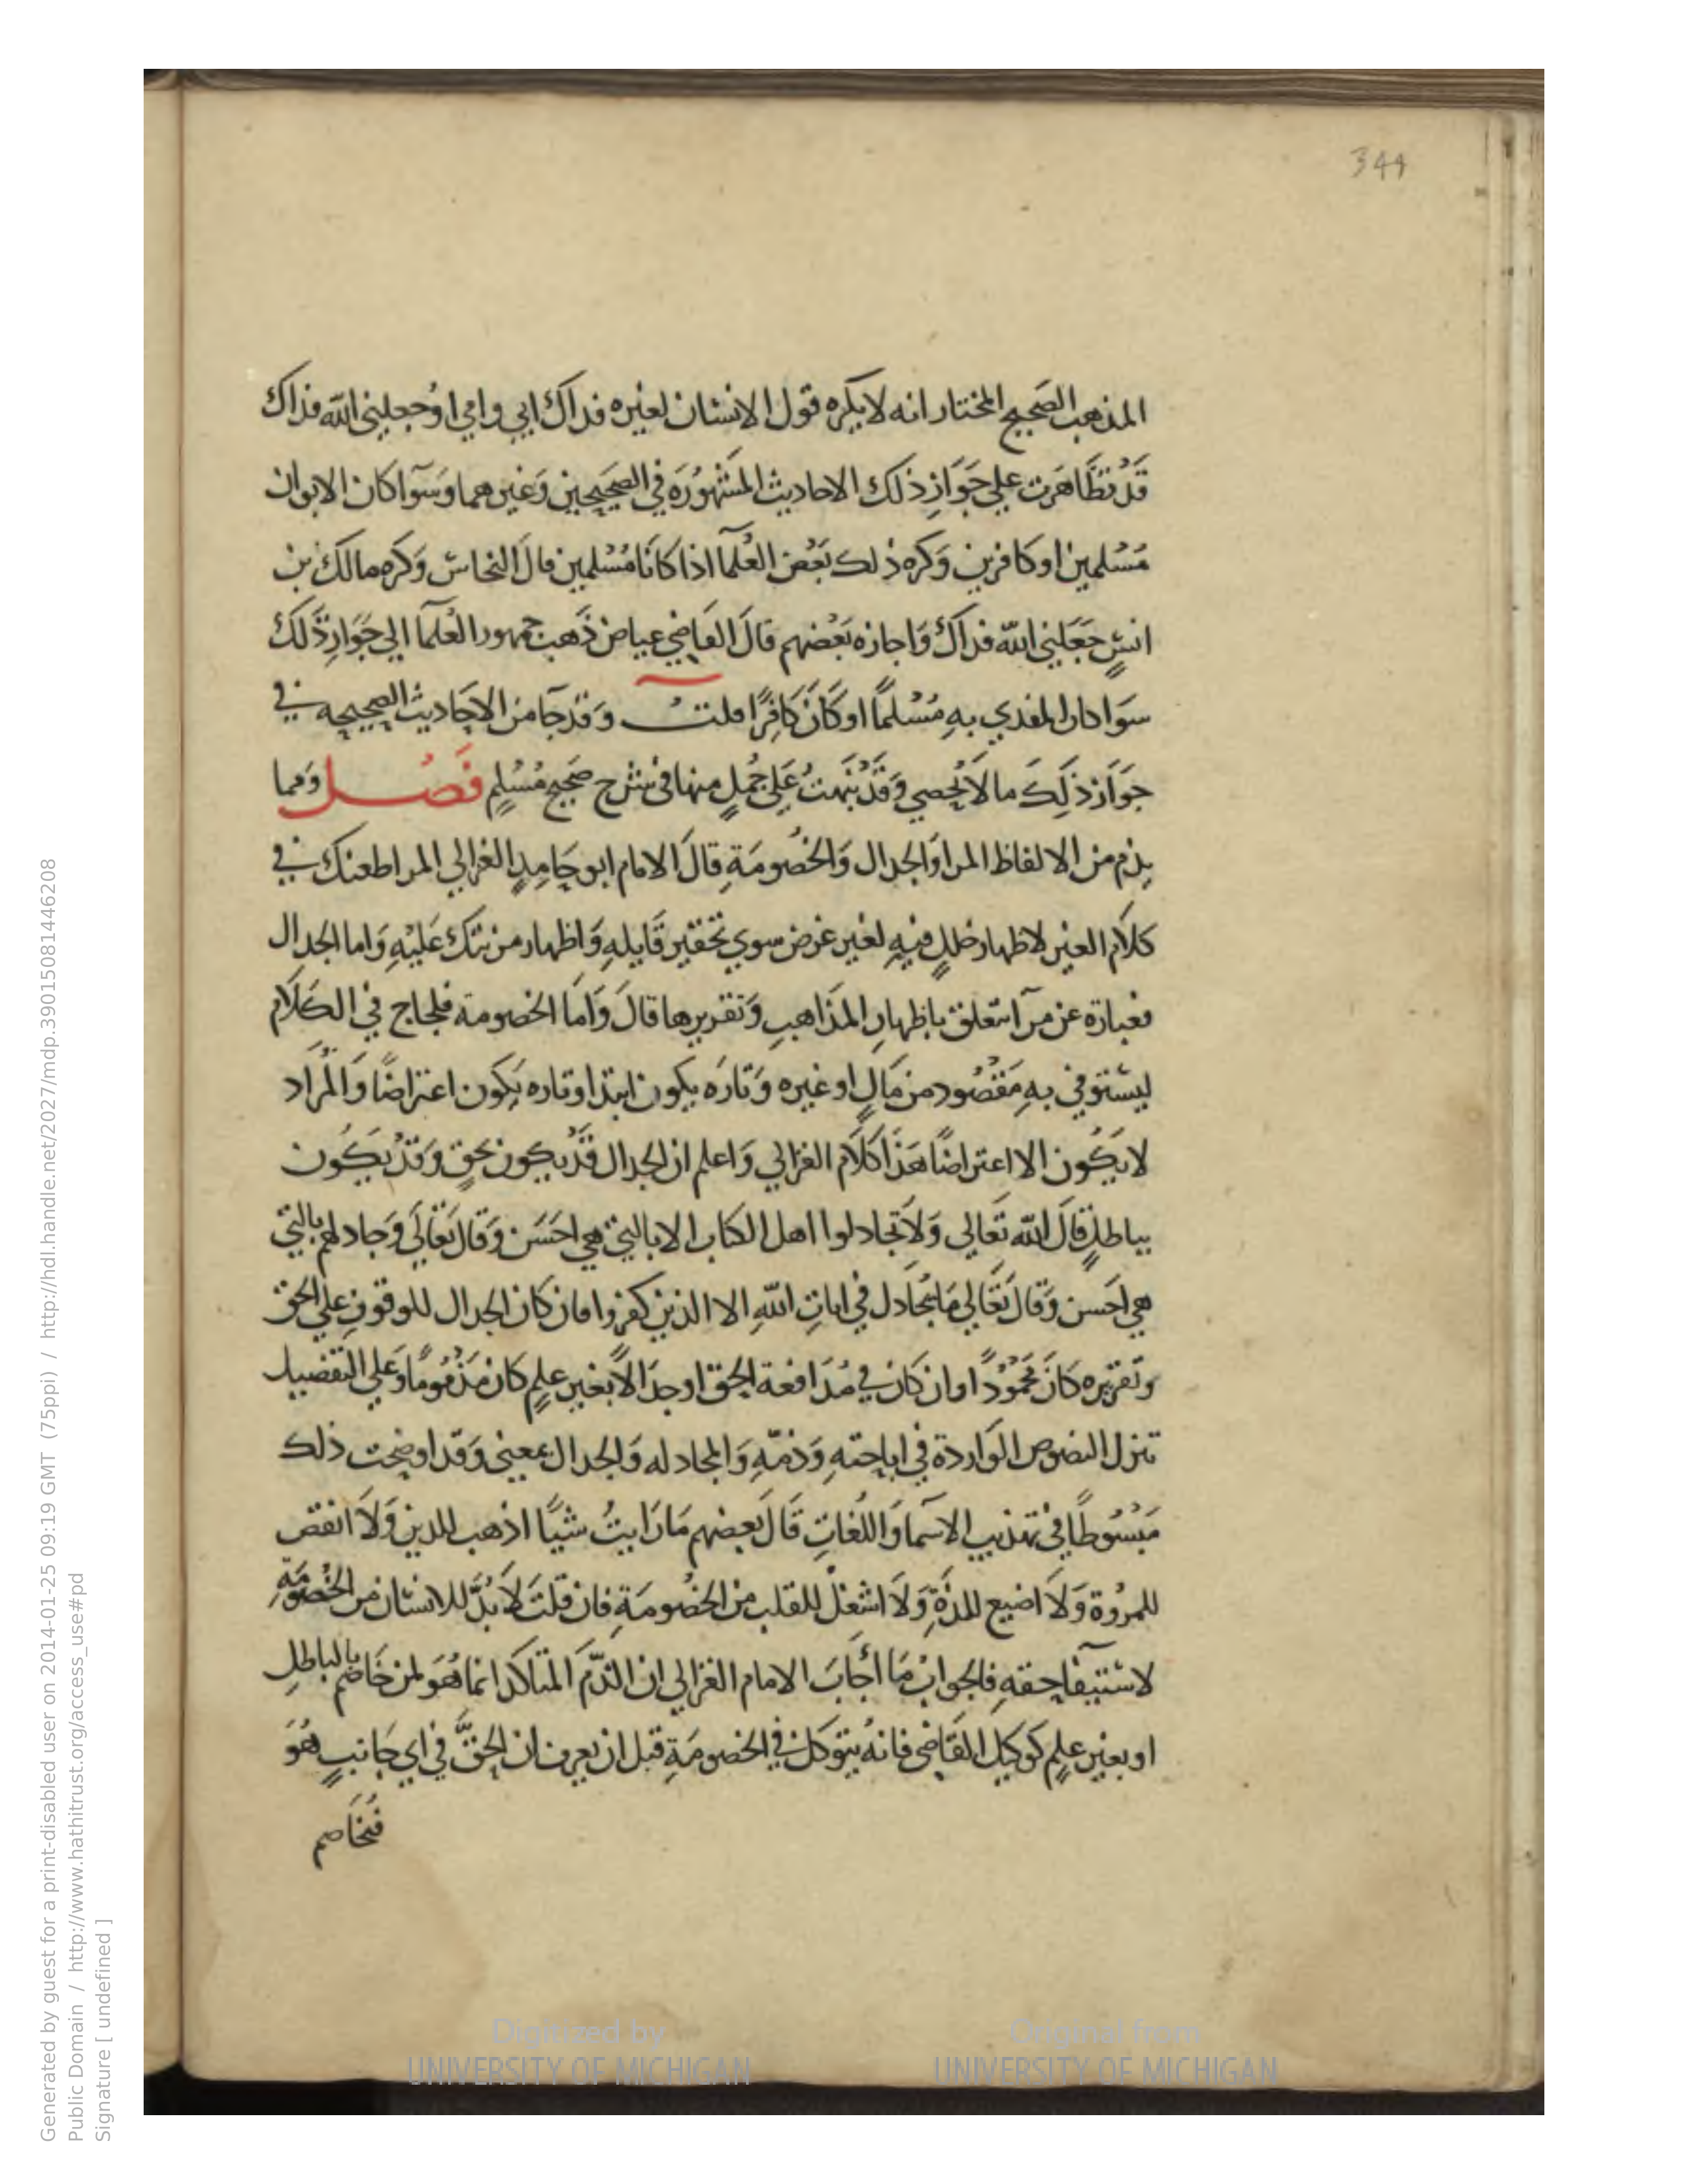 344
المذهب الصحيح المختار انه لا يكره قول الانسان لغيره فداك ابي وامي او جعلني الله فداك
قد تظاهرت علي جواز ذلك الاحاديث المشهوره في الصحيحين وغيرهما وسوآ كان الابوان
مسلمين او كافرين وكره ذلك بعض العلمآ اذا كانا مسلمين قال النحاس وكره مالك بن
انس جعلني الله فداك واجازه بعضهم قال القاضي عياض ذهب جمهور العلمآ الي جواز ذلك
سوا كان المفدي به مسلما او كان كافرا قلت وقد جآ من الاحاديث الصحيحه في
جواز ذلك ما لا يحصي وقد نبهت علي جمل منها في شرح صحيح مسلم فصل ومما
يذم من الالفاظ المرا والجدال والخصومة قال الامام ابو حامد الغزالي المرا طعنك في
كلام الغير لاظهار خلل فيه لغير غرض سوي تحقير قايله واظهار مزيتك عليه واما الجدال
فعبارة عن مرآ يتعلق باظهار المذاهب وتقريرها قال واما الخصومة فلجاج في الكلام
ليستوفي به مقصود من مال او غيره وتاره يكون ابتدا وتاره يكون اعتراضا والمراد
لا يكون الا اعتراضا هذا كلام الغزالي واعلم ان الجدال قد يكون بحق وقد يكون
بباطل قال الله تعالي ولا تجادلوا اهل الكتاب الا بالتي هي احسن وقال تعالي وجادلهم بالتي
هي احسن وقال تعالي ما يجادل في ايات الله الا الذين كفروا فان كان الجدال للوقوف علي الحق
وتقريره كان محمودا وان كان في مدافعة الحق او جدالا بغير علم كان مذموما وعلي التفصيل
تنزل النصوص الواردة في اباحته وذمه والمجادله والجدال بمعني وقد اوضحت ذلك
مبسوطا في تهذيب الاسما واللغات قال بعضهم ما رايت شيئا اذهب للدين ولا انقص
للمروة ولا اضيع للذة ولا اشغل للقلب من الخصومة فان قلت لا بد للانسان من الخصومة
لاستيفآ حقه فالجواب ما أجاب الامام الغزالي ان الذم المتاكد انما هو لمن خاصم بالباطل
او بغير علم كوكيل القاضي فانه يتوكل في الخصومة قبل ان يعرف ان الحق في اي جانب هو
فيخاصم
Generated by guest for a print-disabled user on 2014-01-25 09:19 GMT (75ppi) / http://hdl.handle.net/2027/mdp.39015081446208
Public Domain / http://www.hathitrust.org/access_use#pd
Signature [ undefined ]
Digitized by
UNIVERSITY OF MICHIGAN
Original from
UNIVERSITY OF MICHIGAN